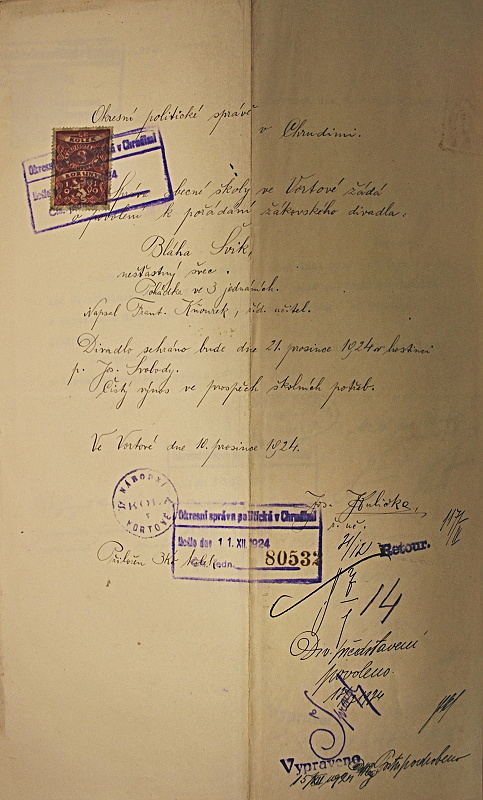 Okresní politické správě
v Chrudimi.
KOLEK
obecné školy ve Vortové žádá
o povolení k pořádání žákovského divadla:
Bláha Švik,
nešťastný švec.
Pohádka ve 3 jednáních.
Napsal Frant. Kňourek, říd. učitel.
Divadlo sehráno bude dne 21. prosince 1924 v hostinci
p. Jos. Svobody.
Čistý výnos ve prospěch školních potřeb.
Ve Vortové dne 10. prosince 1924.
NÁRODNÍ
ŠKOLA
VORTOVÉ
Okresní správa politická v Chrudimi
Došlo dne 11. XII. 1924
80532
Přiložen 3Kč kolek
Jos.
ř. uč.
Retour.
14
Div. představení
povoleno.
Vypraveno